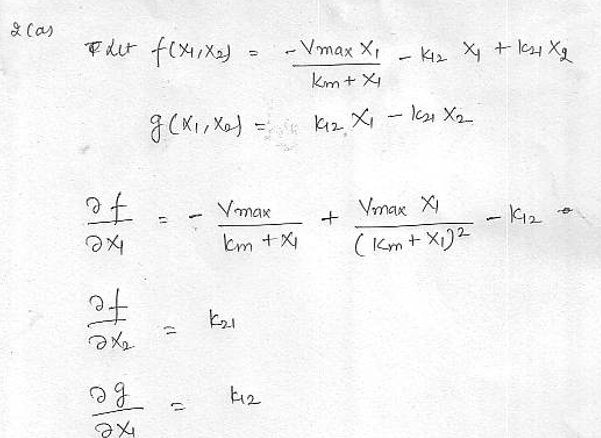 2(a)
Let f(X1,X2) = -Vmax X1 / (Km + X1) - K12 X1 + K21 X2
g(X1,X2) = K12 X1 - K21 X2
∂f/∂X1 = - Vmax / (Km + X1) + Vmax X1 / (Km + X1)² - K12
∂f/∂X2 = K21
∂g/∂X1 = K12